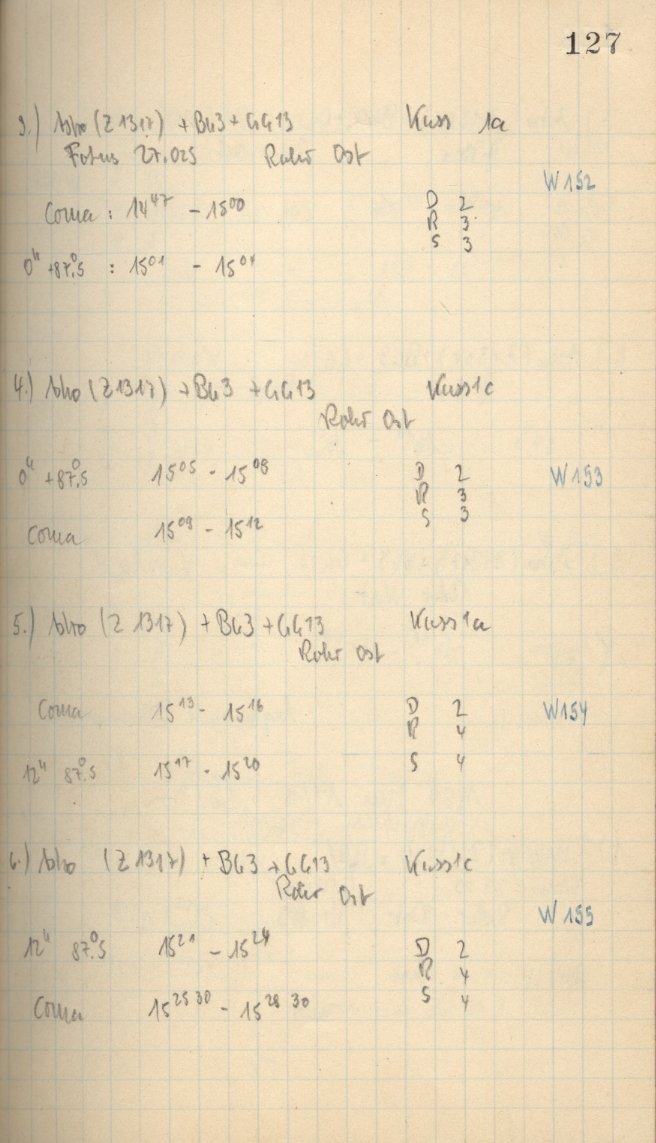 127
3.) Astro (Z 1317) + BG3 + GG13 Kass 1a
Fokus 27.025 Rohr Ost
W152
Coma : 14 47 - 15 00 D 2
R 3
S 3
0h +87°.5 : 15 01 - 15 04
4.) Astro (Z 1317) + BG3 + GG13 Kass 1c
Rohr Ost
0h +87°.5 15 05 - 15 08 D 2 W153
R 3
S 3
Coma 15 09 - 15 12
5.) Astro (Z 1317) + BG3 + GG13 Kass 1a
Rohr Ost
Coma 15 13 - 15 16 D 2 W154
R 4
12h 87°.5 15 17 - 15 20 S 4
6.) Astro (Z 1317) + BG3 + GG13 Kass 1c
Rohr Ost
W155
12h 87°.5 15 21 - 15 24 D 2
R 4
S 4
Coma 15 25 30 - 15 28 30